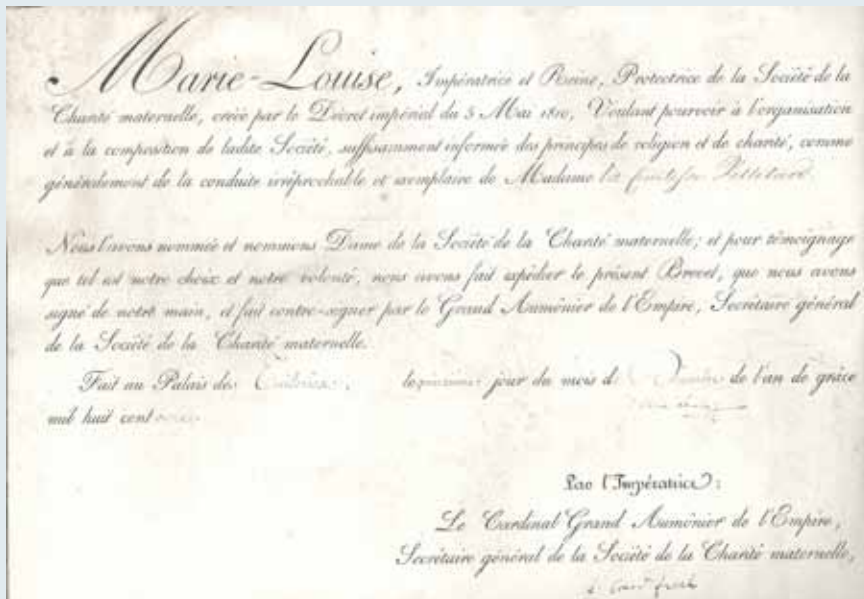 Marie-Louise, Impératrice et Reine, Protectrice de la Société de la
Charité maternelle, créée par le Décret impérial du 5 Mai 1810, Voulant pourvoir à l'organisation
et à la composition de ladite Société, suffisamment informée des principes de religion et de charité, comme
généralement de la conduite irréprochable et exemplaire de Madame la Comtesse
Nous l'avons nommée et nommons Dame de la Société de la Charité maternelle; et pour témoignage
que tel est notre choix et notre volonté, nous avons fait expédier le présent Brevet, que nous avons
signé de notre main, et fait contre-signer par le Grand Aumônier de l'Empire, Secrétaire général
de la Société de la Charité maternelle.
Fait au Palais des Tuileries le jour du mois de de l'an de grâce
mil huit cent
Par l'Impératrice:
Le Cardinal Grand Aumônier de l'Empire,
Secrétaire général de la Société de la Charité maternelle,